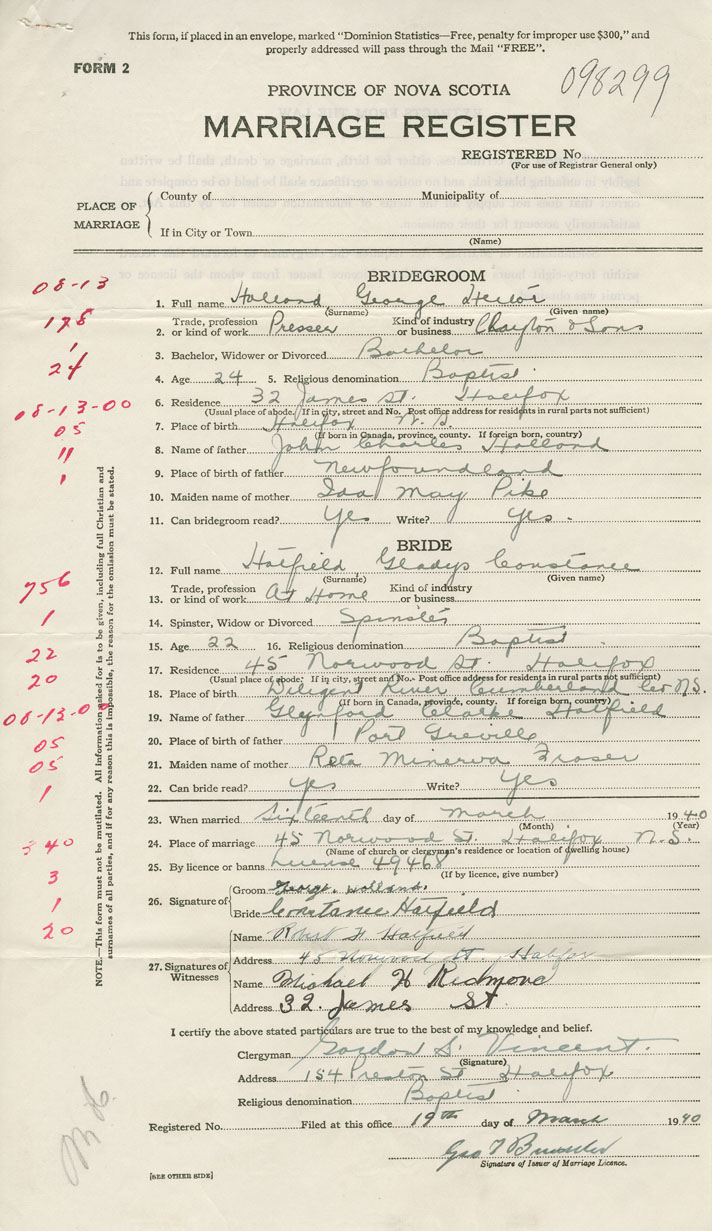 This form, if placed in an envelope, marked “Dominion Statistics—Free, penalty for improper use $300,” and
properly addressed will pass through the Mail “FREE”.
FORM 2
098299
PROVINCE OF NOVA SCOTIA
MARRIAGE REGISTER
REGISTERED No
(For use of Registrar General only)
PLACE OF MARRIAGE
County of Municipality of
If in City or Town
(Name)
BRIDEGROOM
08-13
1. Full name Holland George Hector
(Surname) (Given name)
178
2. Trade, profession or kind of work Presser Kind of industry or business Clayton & Sons
1
3. Bachelor, Widower or Divorced Bachelor
24
4. Age 24 5. Religious denomination Baptist
6. Residence 32 James St. Halifax
08-13-00
(Usual place of abode. If in city, street and No. Post office address for residents in rural parts not sufficient)
05
7. Place of birth Halifax N.S.
(If born in Canada, province, county. If foreign born, country)
11
8. Name of father John Charles Holland
1
9. Place of birth of father Newfoundland
10. Maiden name of mother Ida May Pike
11. Can bridegroom read? Yes Write? Yes.
BRIDE
12. Full name Hatfield Gladys Constance
(Surname) (Given name)
756
13. Trade, profession or kind of work At Home Kind of industry or business
1
14. Spinster, Widow or Divorced Spinster
22
15. Age 22 16. Religious denomination Baptist
20
17. Residence 45 Norwood St. Halifax
(Usual place of abode: If in city, street and No. Post office address for residents in rural parts not sufficient)
08-13-00
18. Place of birth Diligent River Cumberland Co. N.S.
(If born in Canada, province, county. If foreign born, country)
19. Name of father Glynford Clarke Hatfield
05
20. Place of birth of father Port Greville
05
21. Maiden name of mother Reta Minerva Fraser
1
22. Can bride read? yes Write? Yes
23. When married Sixteenth day of March 1940
(Month) (Year)
340
24. Place of marriage 45 Norwood St. Halifax N.S.
(Name of church or clergyman's residence or location of dwelling house)
3
25. By licence or banns License 49468
(If by licence, give number)
1
26. Signature of
Groom George Holland.
Bride Constance Hatfield
20
27. Signatures of Witnesses
Name Robert F Hatfield
Address 45 Norwood St. Halifax
Name Michael H Redmond
Address 32. James St.
NOTE.—This form must not be mutilated. All information asked for is to be given, including full Christian and
surnames of all parties, and if for any reason this is impossible, the reason for the omission must be stated.
I certify the above stated particulars are true to the best of my knowledge and belief.
Clergyman Gordon S. Vincent.
(Signature)
Address 154 Preston St Halifax
Religious denomination Baptist
Registered No. Filed at this office 19th day of March 1940
Geo T
Signature of Issuer of Marriage Licence.
[SEE OTHER SIDE]